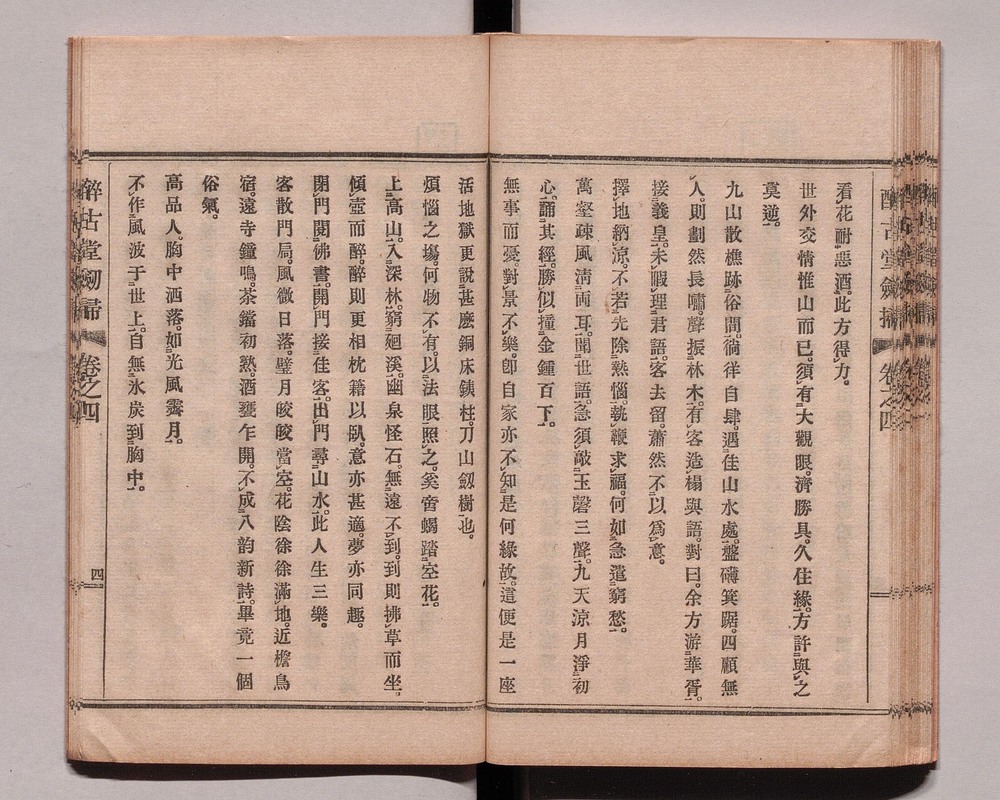 看花耐惡酒。此方得力。
世外交情惟山而已。須有大觀眼。濟勝具。久住緣。方許與之
莫逆。
九山散樵跡俗間。徜徉自肆。遇佳山水處。盤礴箕踞。四顧無
人。則劃然長嘯。聲振林木。有客造榻與語。對曰。余方游華胥。
接羲皇。未暇理君語。客去留。蕭然不以爲意。
擇地納凉。不若先除熱惱。執鞭求福。何如急遣窮愁。
萬壑疎風淸兩耳。聞世語。急須敲玉磬三聲。九天凉月淨初
心。誦其經。勝似撞金鍾百下。
無事而憂。對景不樂。卽自家亦不知是何緣故。這便是一座
活地獄。更說甚麽銅床鉄柱。刀山劒樹也。
煩惱之塲。何物不有。以法眼照之。奚啻蝎踏空花。
上高山。入深林。窮廻溪。幽泉怪石。無遠不到。到則拂草而坐。
傾壺而醉。醉則更相枕籍以臥。意亦甚適。夢亦同趣。
閉門閱佛書。開門接佳客。出門尋山水。此人生三樂。
客散門扃。風微日落。璧月皎皎當空。花陰徐徐滿地。近檐鳥
宿。遠寺鐘鳴。茶鐺初熟。酒甕乍開。不成八韵新詩。畢竟一個
俗氣。
高品人。胸中洒落。如光風霽月。
不作風波于世上。自無氷炭到胸中。
醉古堂劒掃 卷之四
四